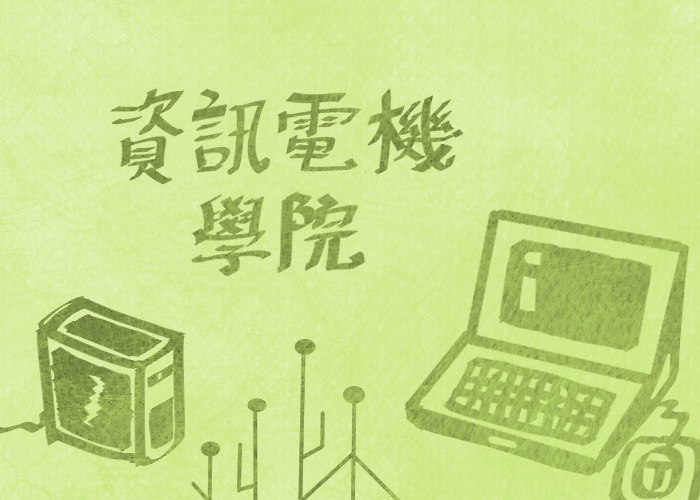 資訊電機
學院